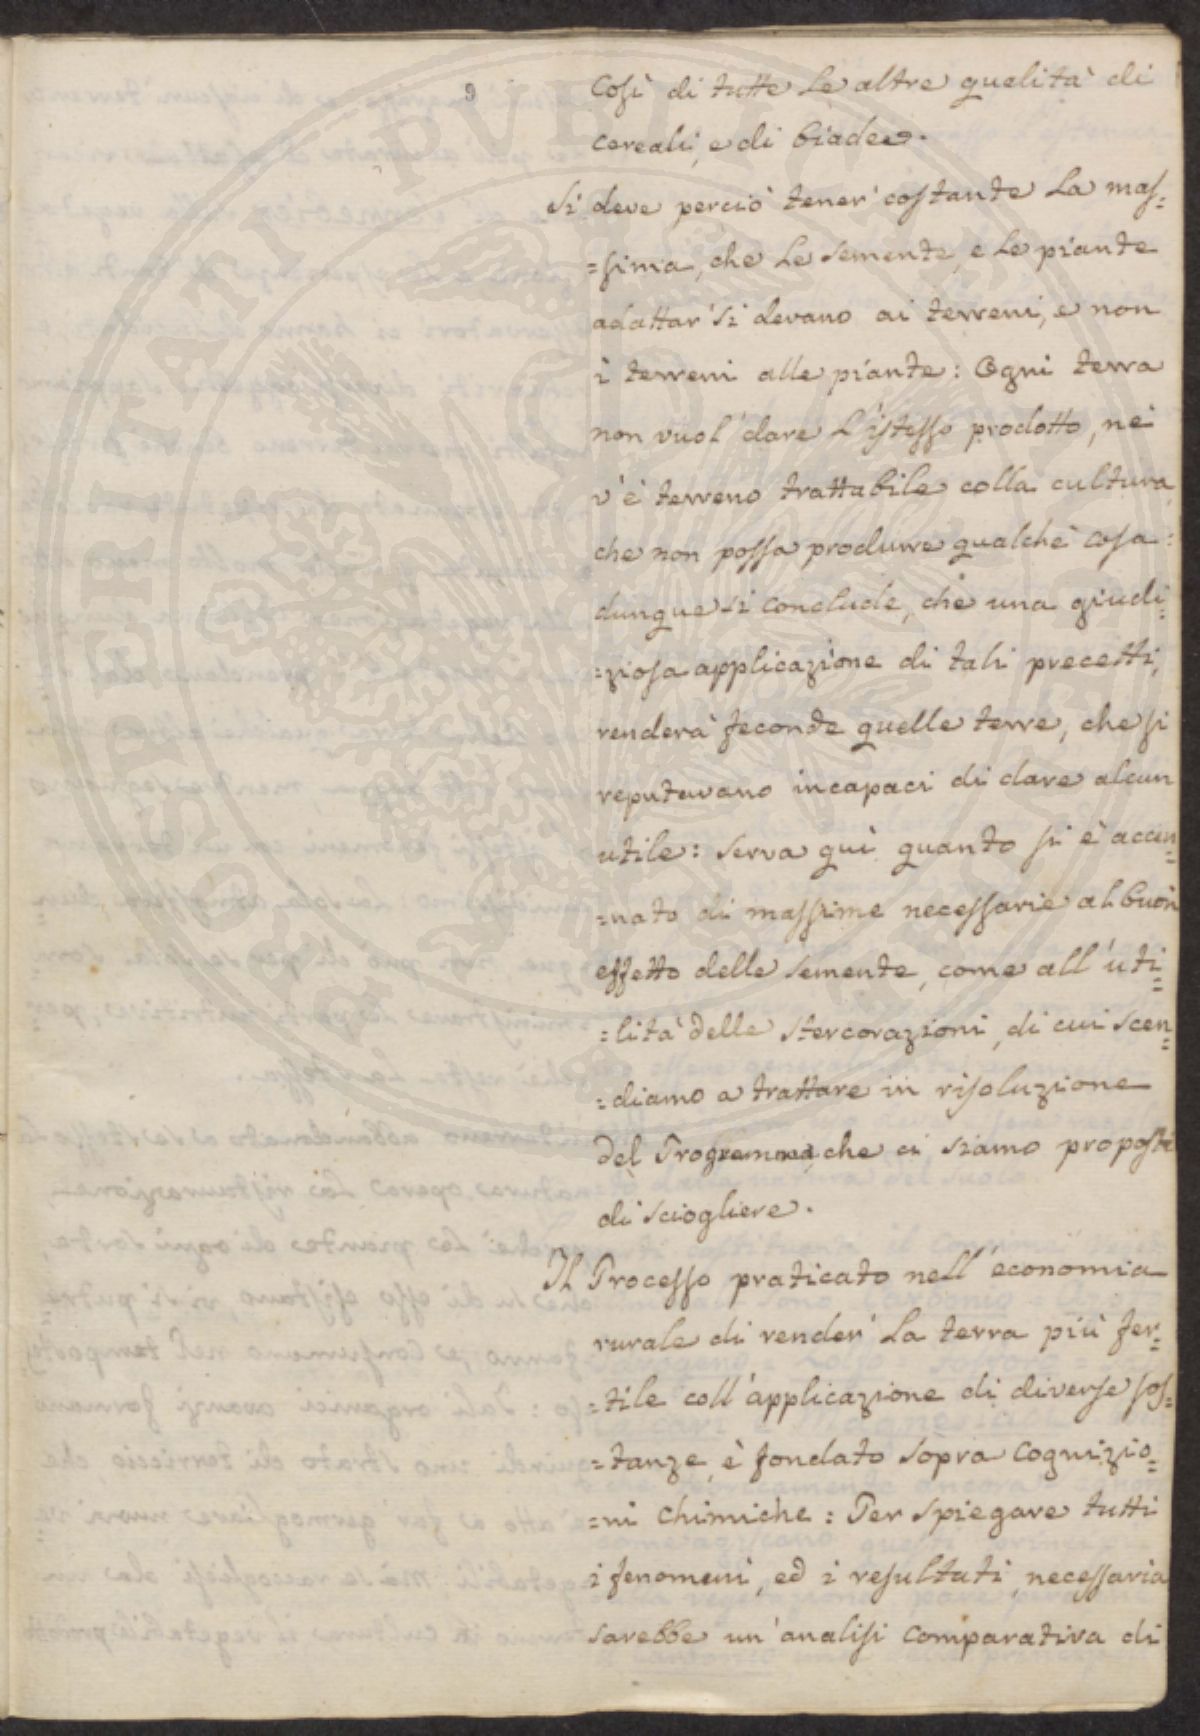 9
Così di tutte Le altre qualità di
cereali, e di biade.
Si deve perciò tener' costante La mas=
=sima, che Le semente, e Le piante
adattar' si devano ai terreni, e non
i terreni alle piante: Ogni terra
non vuol' dare L'istesso prodotto, nè
v'è terreno trattabile colla cultura,
che non possa produrre qualche cosa:
dunque si conclude, che una giudi=
=ziosa applicazione di tali precetti,
renderà feconde quelle terre, che si
reputavano incapaci di dare alcun
utile: Serva quì quanto si è accen=
=nato di massime necessarie al buon
effetto delle semente, come all'uti=
=lità delle stercorazioni, di cui scen=
=diamo a trattare in risoluzione
del Programma, che ci siamo proposti
di sciogliere.
Il Processo praticato nell'economia
rurale di render' La terra più fer=
=tile coll'applicazione di diverse sos=
=tanze, è fondato sopra cognizio=
=ni Chimiche: Per spiegare tutti
i fenomeni, ed i resultati, necessaria
sarebbe un'analisi comparativa di
PROSPERITATI PVBLICAE AVGENDAE